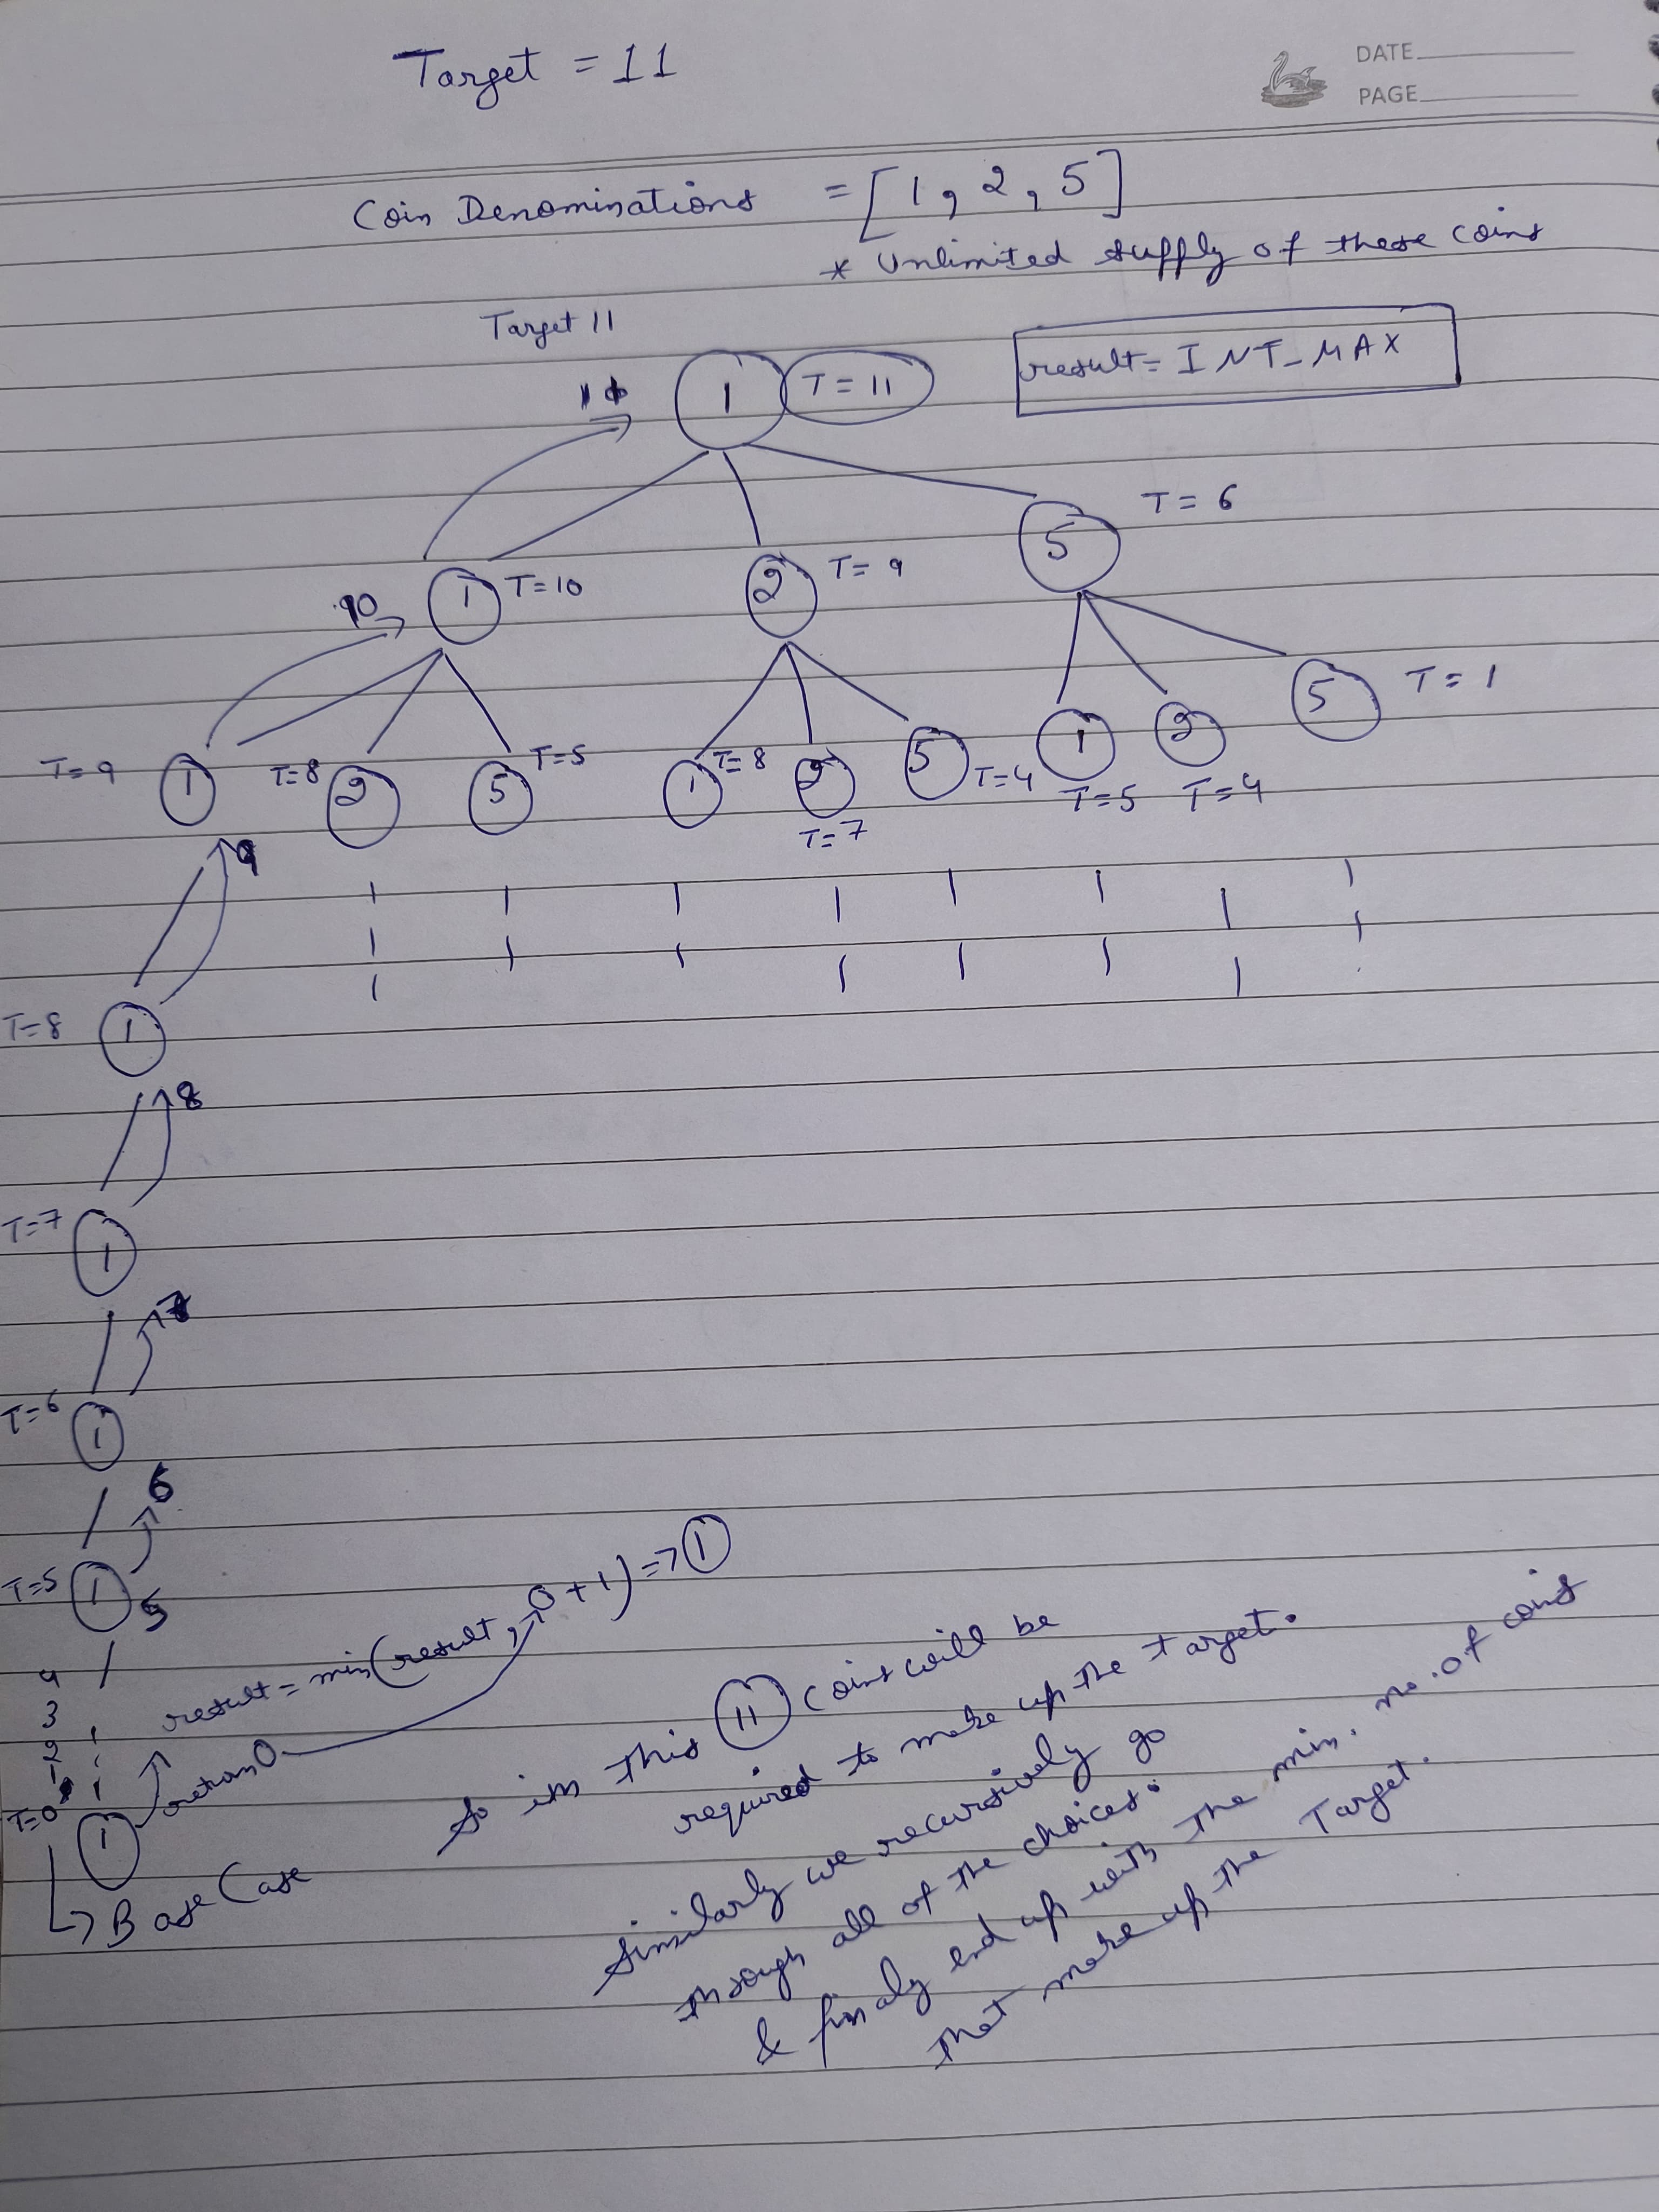 Target = 11
DATE
PAGE
Coin Denominations = [1, 2, 5]
* Unlimited supply of these coins
Target 11
result = INT_MAX
11
1 T = 11
5 T = 6
10
1 T=10
2 T= 9
5 T= 1
T=9 1
T=8 2
5 T=5
1 T=8
2 T=7
5 T=4
1 T=5
2 T=4
9
T=8 1
8
T=7 1
7
T=6 1
6
T=5 1 5
4
3
2
1
T=0 1
Base Case
return 0
result = min(result, 0+1) => 1
So in this 11 coins will be
required to make up the target.
Similarly we recursively go
through all of the choices.
& finaly end up with the min. no. of coins
that make up the Target.